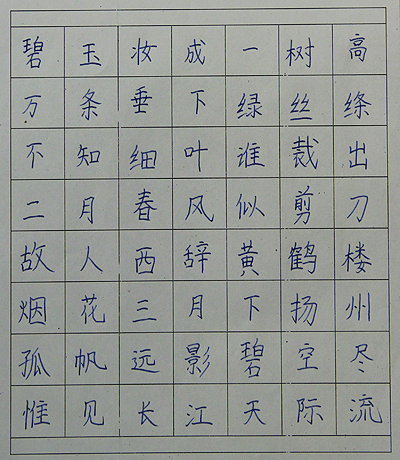 碧玉妆成一树高
万条垂下绿丝绦
不知细叶谁裁出
二月春风似剪刀
故人西辞黄鹤楼
烟花三月下扬州
孤帆远影碧空尽
惟见长江天际流